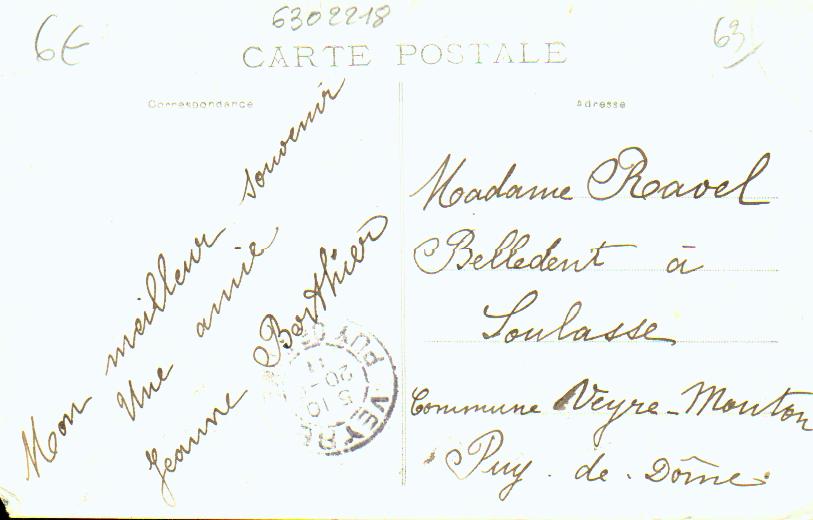 6302218
6€
63
CARTE POSTALE
Correspondance
Mon meilleur souvenir
Une amie
Jeanne Berthier
Adresse
Madame Ravel
Belledent à
Soulasse
Commune Veyre-Mouton
Puy-de-Dôme
VEYRE
PUY DE
20
5 10